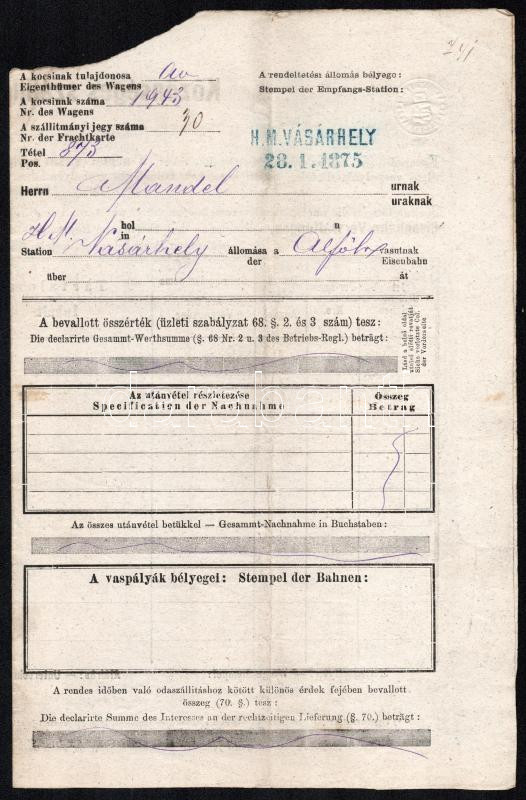 A kocsinak tulajdonosa
Eigenthümer des Wagens
A kocsinak száma 1943
Nr. des Wagens
A szállitmányi jegy száma 30
Nr. der Frachtkarte
Tétel 873
Pos.
A rendeltetési állomás bélyege:
Stempel der Empfangs-Station:
H.M.VÁSÁRHELY
28.1.1875
Herrn Mandel urnak
uraknak
H.M. hol n
in
Station Vásárhely állomása a Alföld vasutnak
der Eisenbahn
über át
A bevallott összérték (üzleti szabályzat 68. §. 2. és 3 szám) tesz:
Die declarirte Gesammt-Werthsumme (§. 68 Nr. 2 u. 3 des Betriebs-Regl.) beträgt:
Lásd a belső oldal
utolsó előtti rovatját
Siehe vorletzte Col.
der Vorderseite
Az utánvétel részletezése
Specification der Nachnahme
Összeg
Betrag
Az összes utánvétel betükkel — Gesammt-Nachnahme in Buchstaben:
A vaspályák bélyegei: Stempel der Bahnen:
A rendes időben való odaszállitáshoz kötött különös érdek fejében bevallott
összeg (70. §.) tesz:
Die declarirte Summe des Interesses an der rechtzeitigen Lieferung (§. 70.) beträgt: